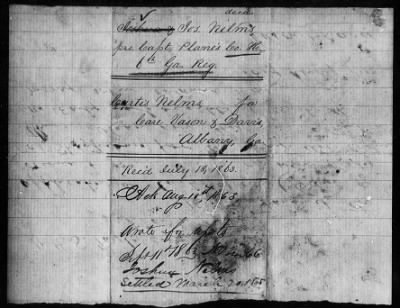 decd
Joshua & Jos. Nelms
pr Capt. Plane's Co. H.
6th Ga. Reg.
Curtis Nelms for
Care Vason & Davis,
Albany, Ga.
Recd July 18, 1863.
Ack Aug 11th 1863
Wrote for
Sept 11th 186
Joshua Nelms
Settled March 20 1865